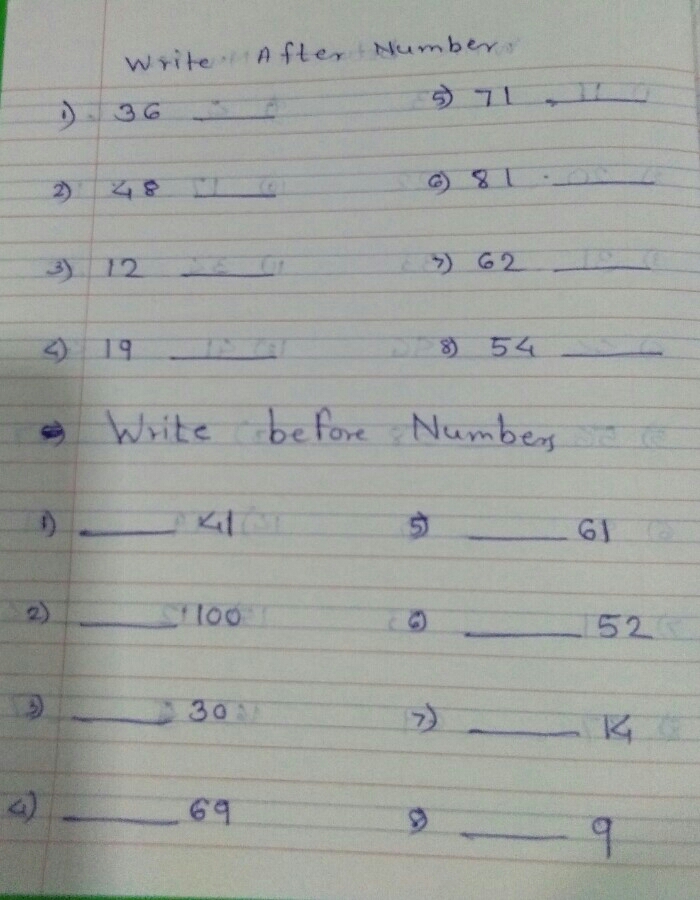 Write After Number
1) 36 ____ 5) 71 ____
2) 48 ____ 6) 81 ____
3) 12 ____ 7) 62 ____
4) 19 ____ 8) 54 ____
Write before Numbers
1) ____ 41 5) ____ 61
2) ____ 100 6) ____ 52
3) ____ 30 7) ____ 14
4) ____ 69 8) ____ 9